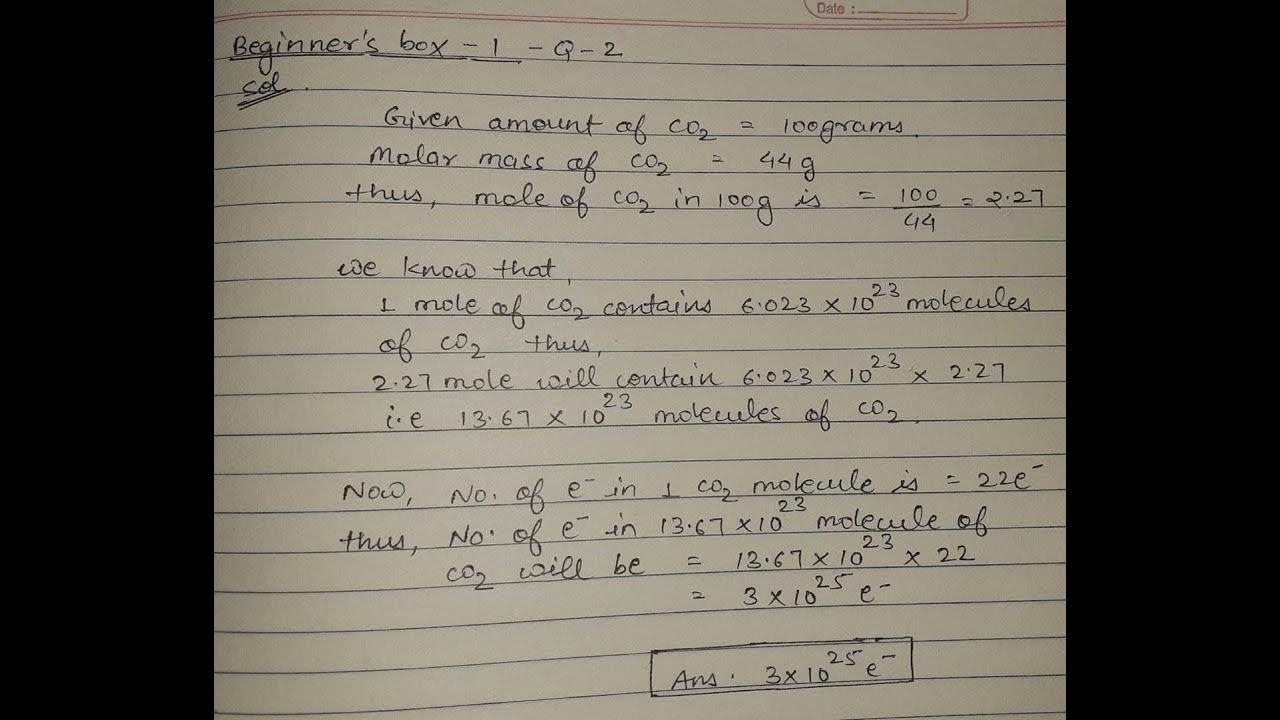 Date :
Beginner's box - 1 - Q - 2
Sol.
Given amount of CO₂ = 100grams.
Molar mass of CO₂ = 44g
thus, mole of CO₂ in 100g is = 100/44 = 2.27
we know that,
1 mole of CO₂ contains 6.023 × 10²³ molecules
of CO₂ thus,
2.27 mole will contain 6.023 × 10²³ × 2.27
i.e 13.67 × 10²³ molecules of CO₂.
Now, No. of e⁻ in 1 CO₂ molecule is = 22e⁻
thus, No. of e⁻ in 13.67 × 10²³ molecule of
CO₂ will be = 13.67 × 10²³ × 22
= 3 × 10²⁵ e⁻
Ans. 3 × 10²⁵ e⁻